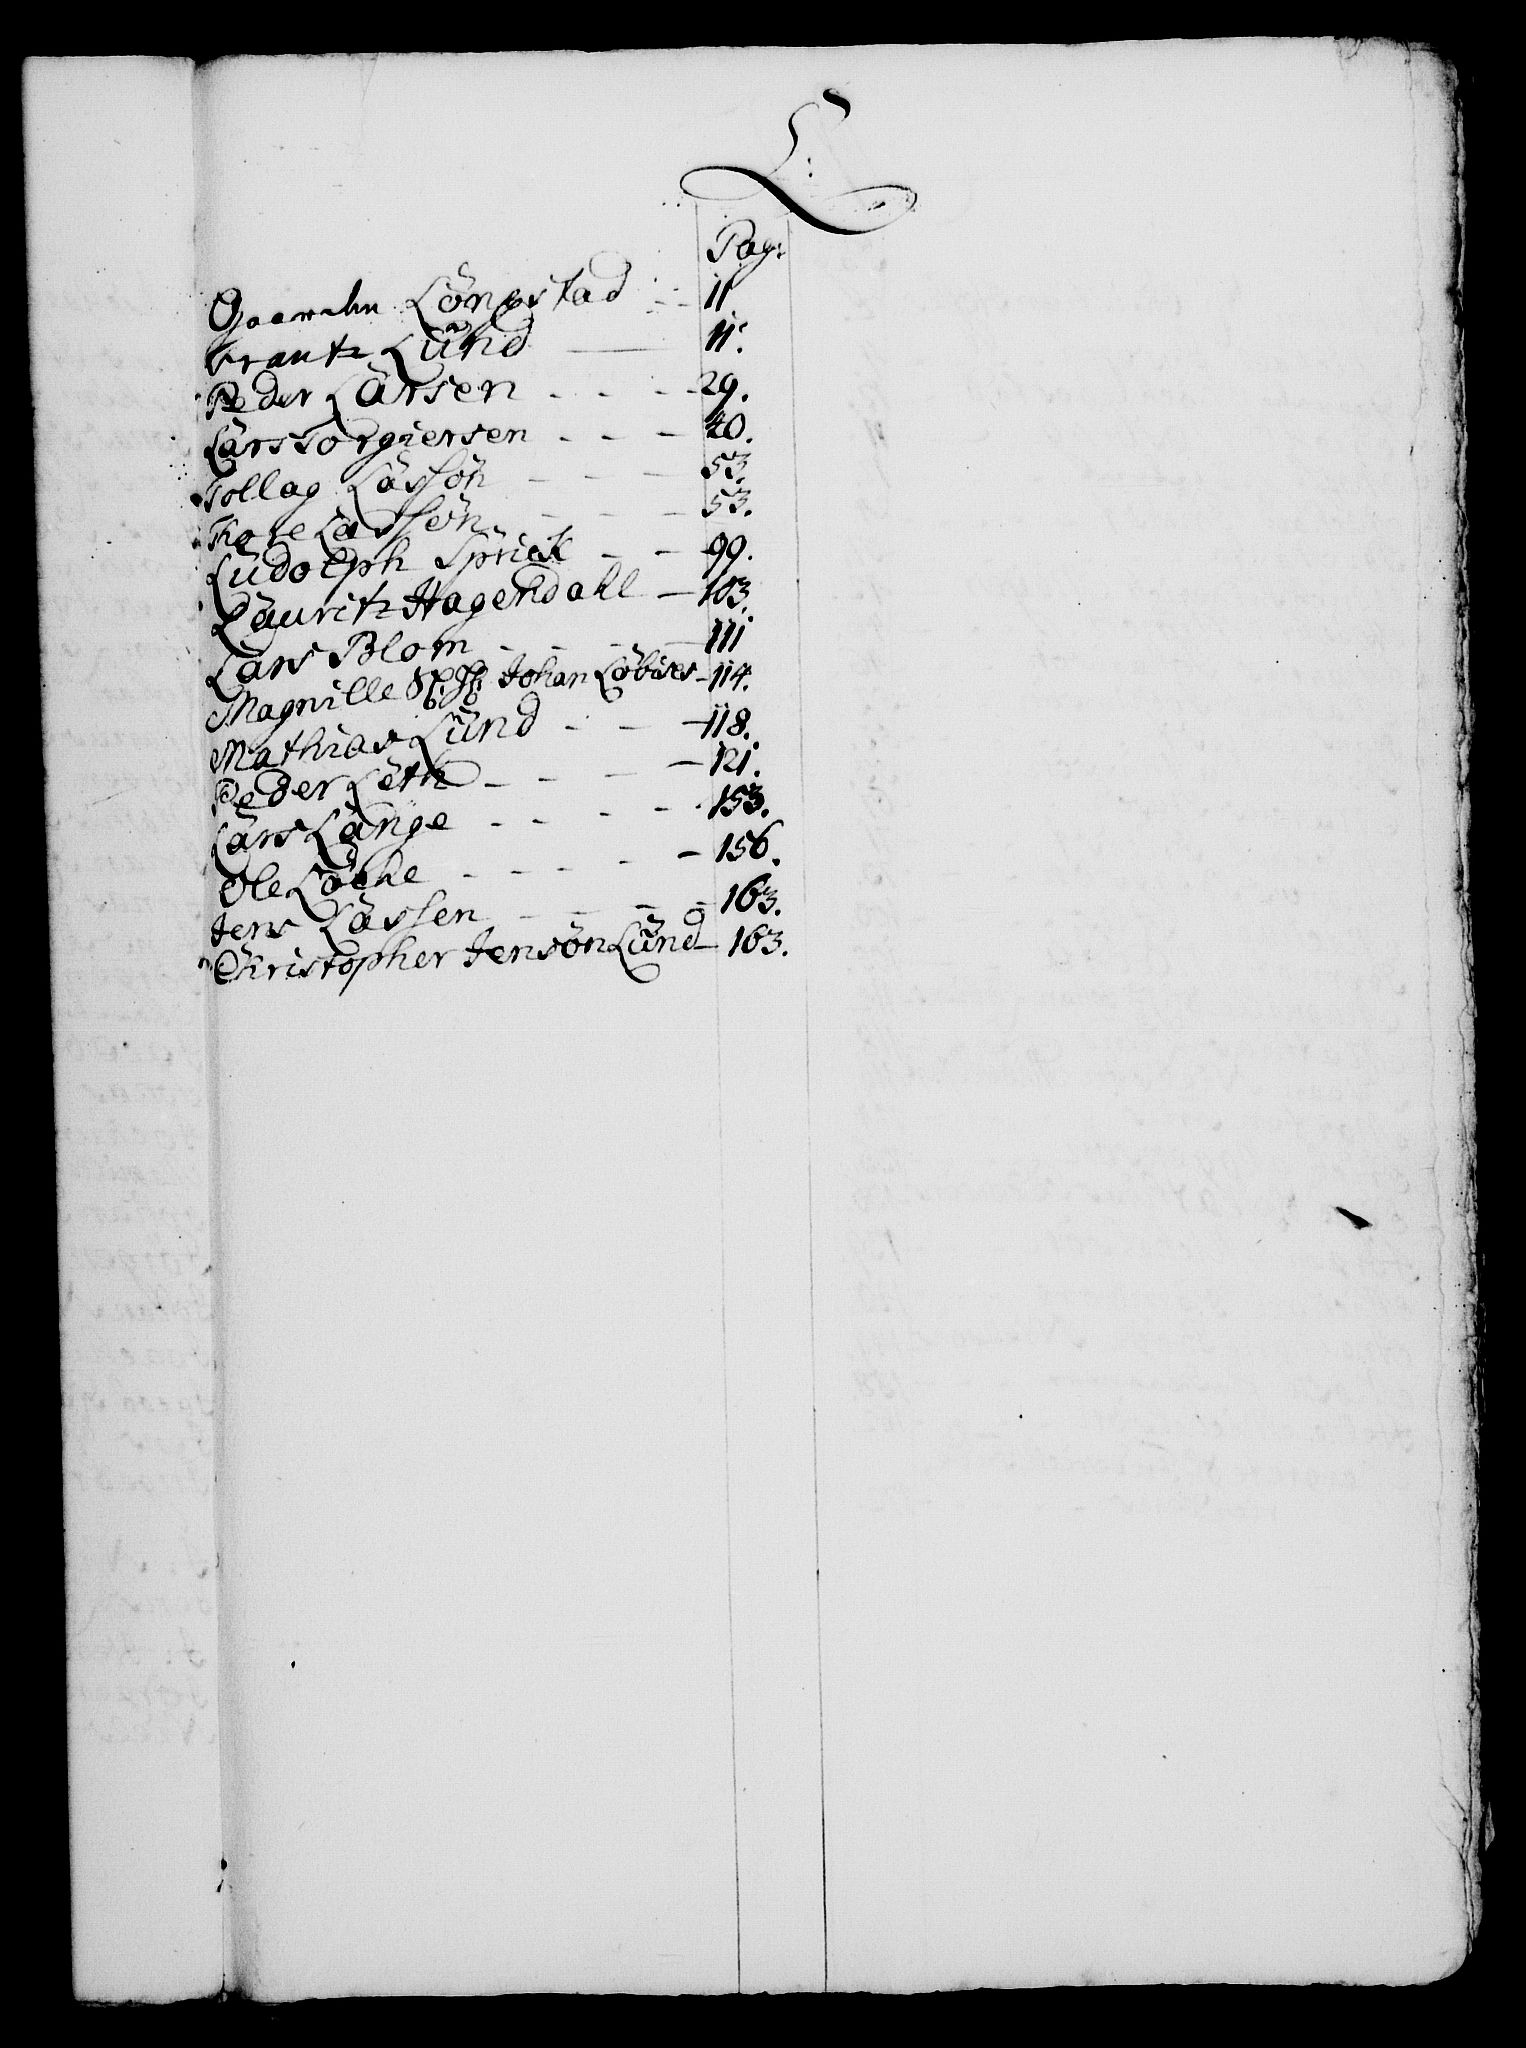 L:
Pag:
Gaarden Löngstad - - 11
Frantz Lund - 11.
Peder Larsen - - - - 29.
Lars Torgiersen - - - 40.
Tollag Lassøn - - - 53.
Tore Lassøn - - - 53.
Ludolph Sprick - - - 99.
Lauritz Hagendahl - 103.
Lars Blom - - - - 111
Magnille Sl. Johan Lobises - 114.
Mathias Lund - - - 118.
Peder Leth - - - - 121.
Lars Lange - - - - 153.
Ole Locke - - - - 156.
Jens Lassen - - - - 163.
Christopher Jensøn Lund - 163.